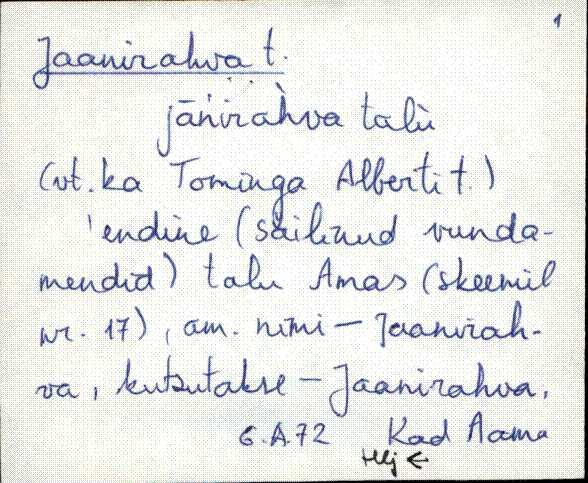 1
Jaanirahva t.
jāńiràhva talù
(vt. ka Tominga Alberti t.)
'endine (säilinud vunda-
mendid) talu Amas (skeemil
nr. 17), am. nimi – Jaanirah-
va, kutsutakse – Jaanirahva.
6.A.72 Kad Aama
Hlj ←